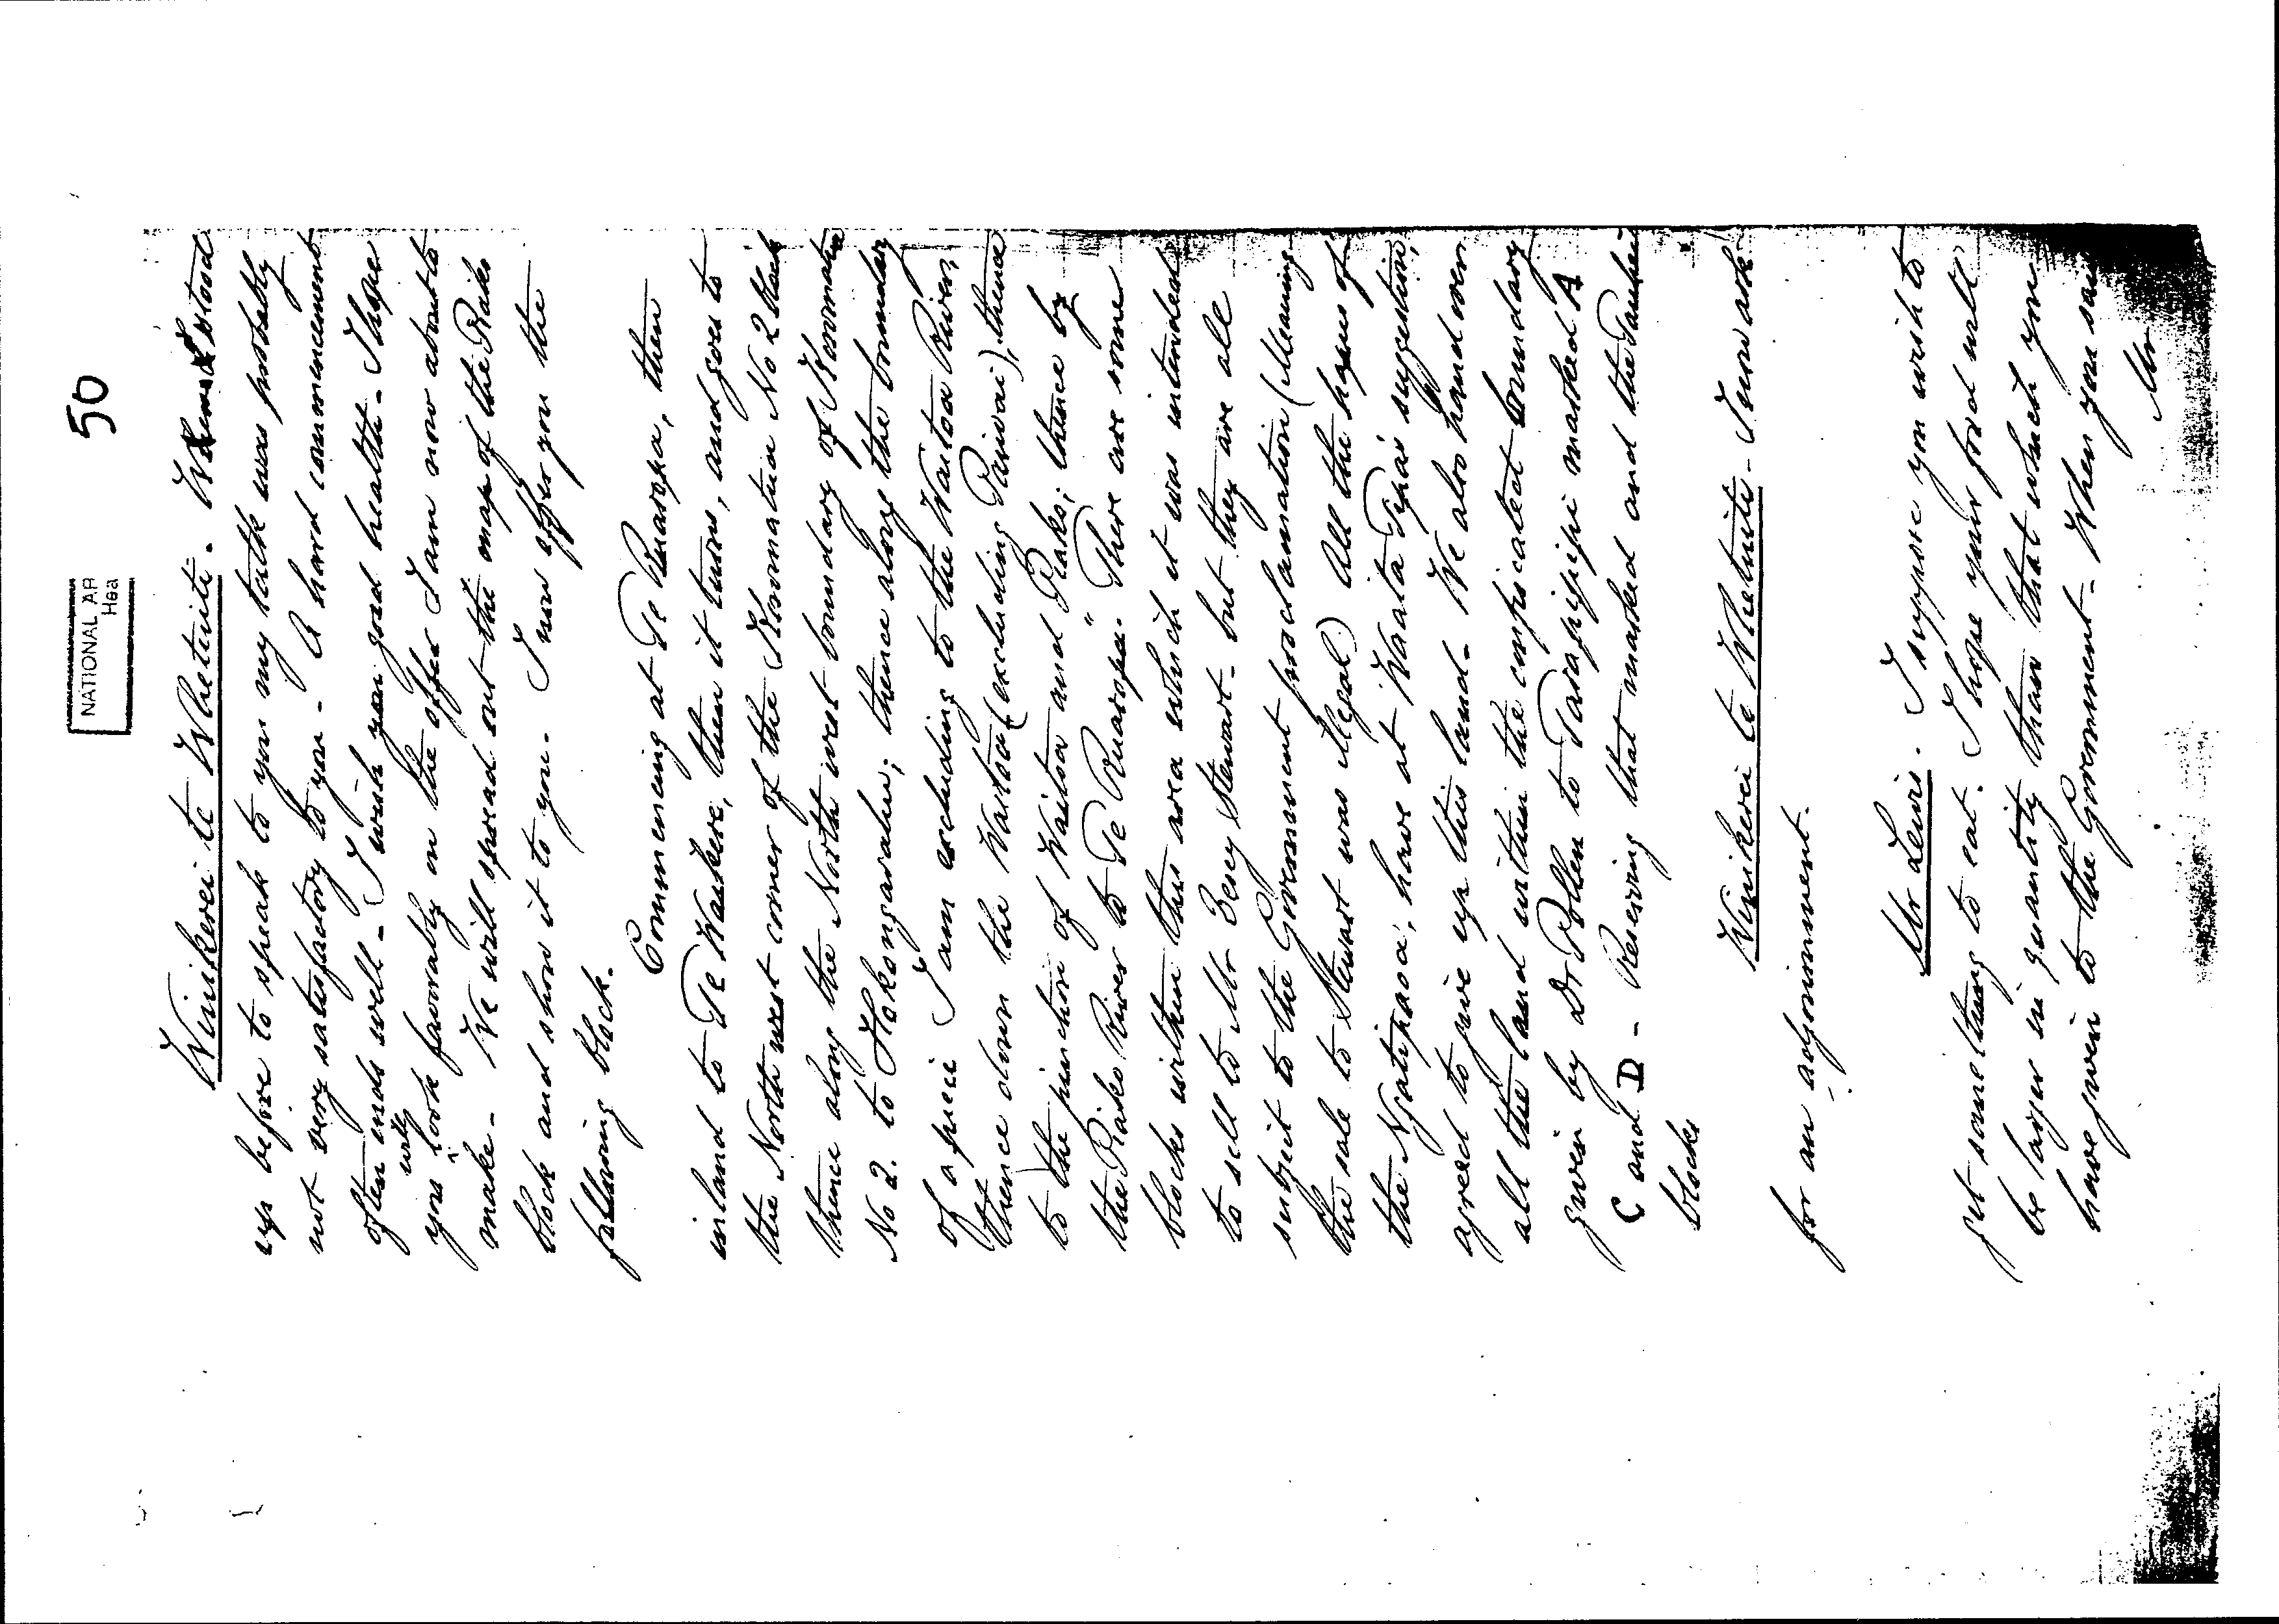 50
NATIONAL AR
Hea
Winikerei te Whetuiti. When I stood
up before to speak to you my talk was probably
not very satisfactory to you - A hard commencement
often ends well - I wish you good health - I hope
you will look favorably on the offer I am now about to
make - We will spread out the map of the Piako
block and show it to you - I now offer you the
following block.
Commencing at Te Ruaropa, then
inland to Te Waikere, then it turns, and goes to
the North west corner of the No 2 block
thence along the North west boundary of
No 2. to Hakongarahu; thence along the boundary
of a piece I am excluding to the Waitoa River,
thence down the Waitoa (excluding ), thence
to the junction of Waitoa and Piako; thence by
the Piako River to Te Ruaropa." There are some
blocks within this area which it was intended
to sell to Mr Besey Stewart - but they are all
subject to the Government proclamation (Meaning
the sale to Stewart was illegal.) All the hapus of
the Ngatipaoa, have at Waata Tipa's suggestion,
agreed to give up this land - We also hand over
all the land within the confiscated boundary
given by Dr Pollen to Tarapipipi marked A
C and D - Reserving that marked and the
blocks
Winikerei te Whetuiti - I now ask
for an adjournment.
Mr Lewis. I suppose you wish to
get something to eat. I hope your food will
be larger in quantity than that which you
have given to the Government - When you saw
Mr